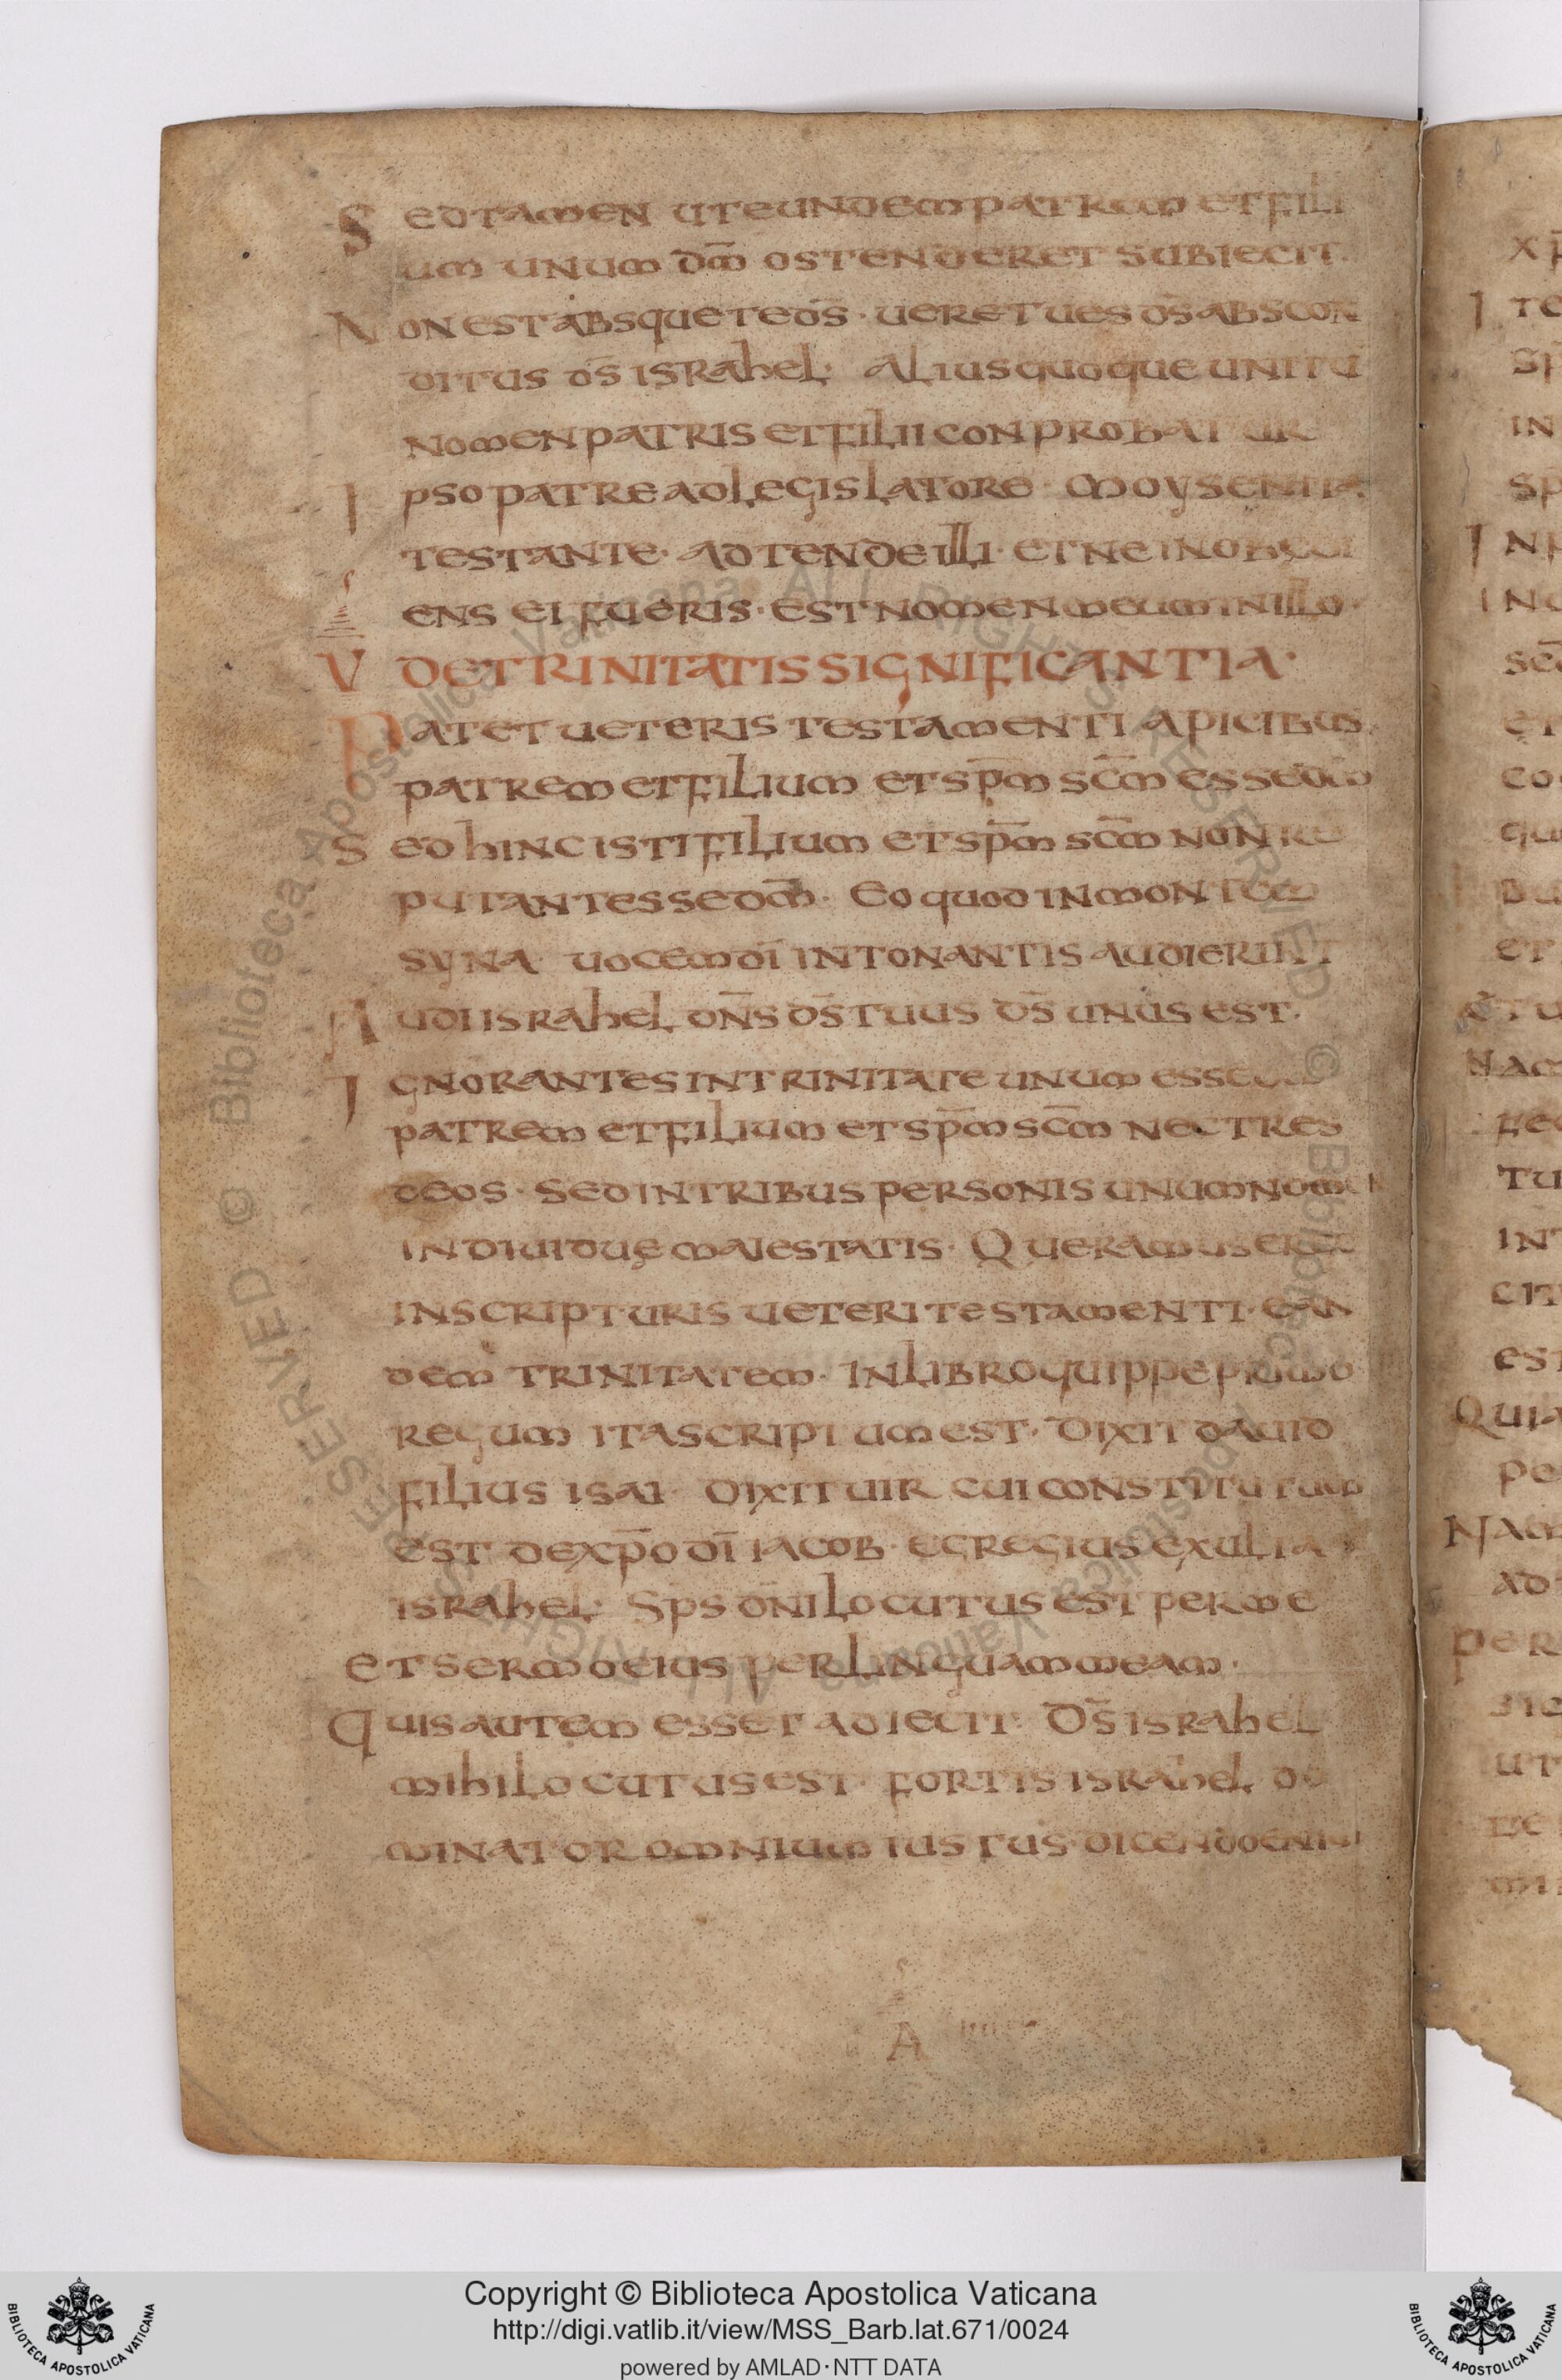 Sed tamen ut eundem patrem et fili
um unum dm̄ ostenderet subiecit.
Non est absque te ds̄· uere tu es ds̄ abscon
ditus ds̄ israhel· Alius quoque unitu
nomen patris et filii conprobatur
Ipso patre ad legislatore moysen ita
testante· adtende illi· et ne inobedi
ens ei fueris· est nomen meum in illo·
V DE TRINITATIS SIGNIFICANTIA·
Patet ueteris testamenti apicibus
patrem et filium et sp̄m sc̄m esse dm̄
Sed hinc isti filium et sp̄m sc̄m non re
putant esse dm̄· Eo quod in montem
syna uocem dī intonantis audierunt
Audi israhel dn̄s ds̄ tuus ds̄ unus est·
Ignorantes in trinitate unum esse
patrem et filium et sp̄m sc̄m nec tres
deos· sed in tribus personis unum nomen
indiuiduę maiestatis· Queramus ergo
in scripturis ueteri testamenti· ean
dem trinitatem· In libro quippe primo
regum ita scriptum est· Dixit dauid
filius isai· dixit uir cui constitutum
est de xp̄o dī iacob· egregius
israhel· Sps dn̄i locutus est per me
et sermo eius per linguam meam·
Quis autem esset adiecit· Ds̄ israhel
mihi locutus est· fortis israhel do
minator omnium iustus· dicendo enim
Copyright © Biblioteca Apostolica Vaticana
http://digi.vatlib.it/view/MSS_Barb.lat.671/0024
powered by AMLAD·NTT DATA
BIBLIOTECA APOSTOLICA VATICANA
BIBLIOTECA APOSTOLICA VATICANA